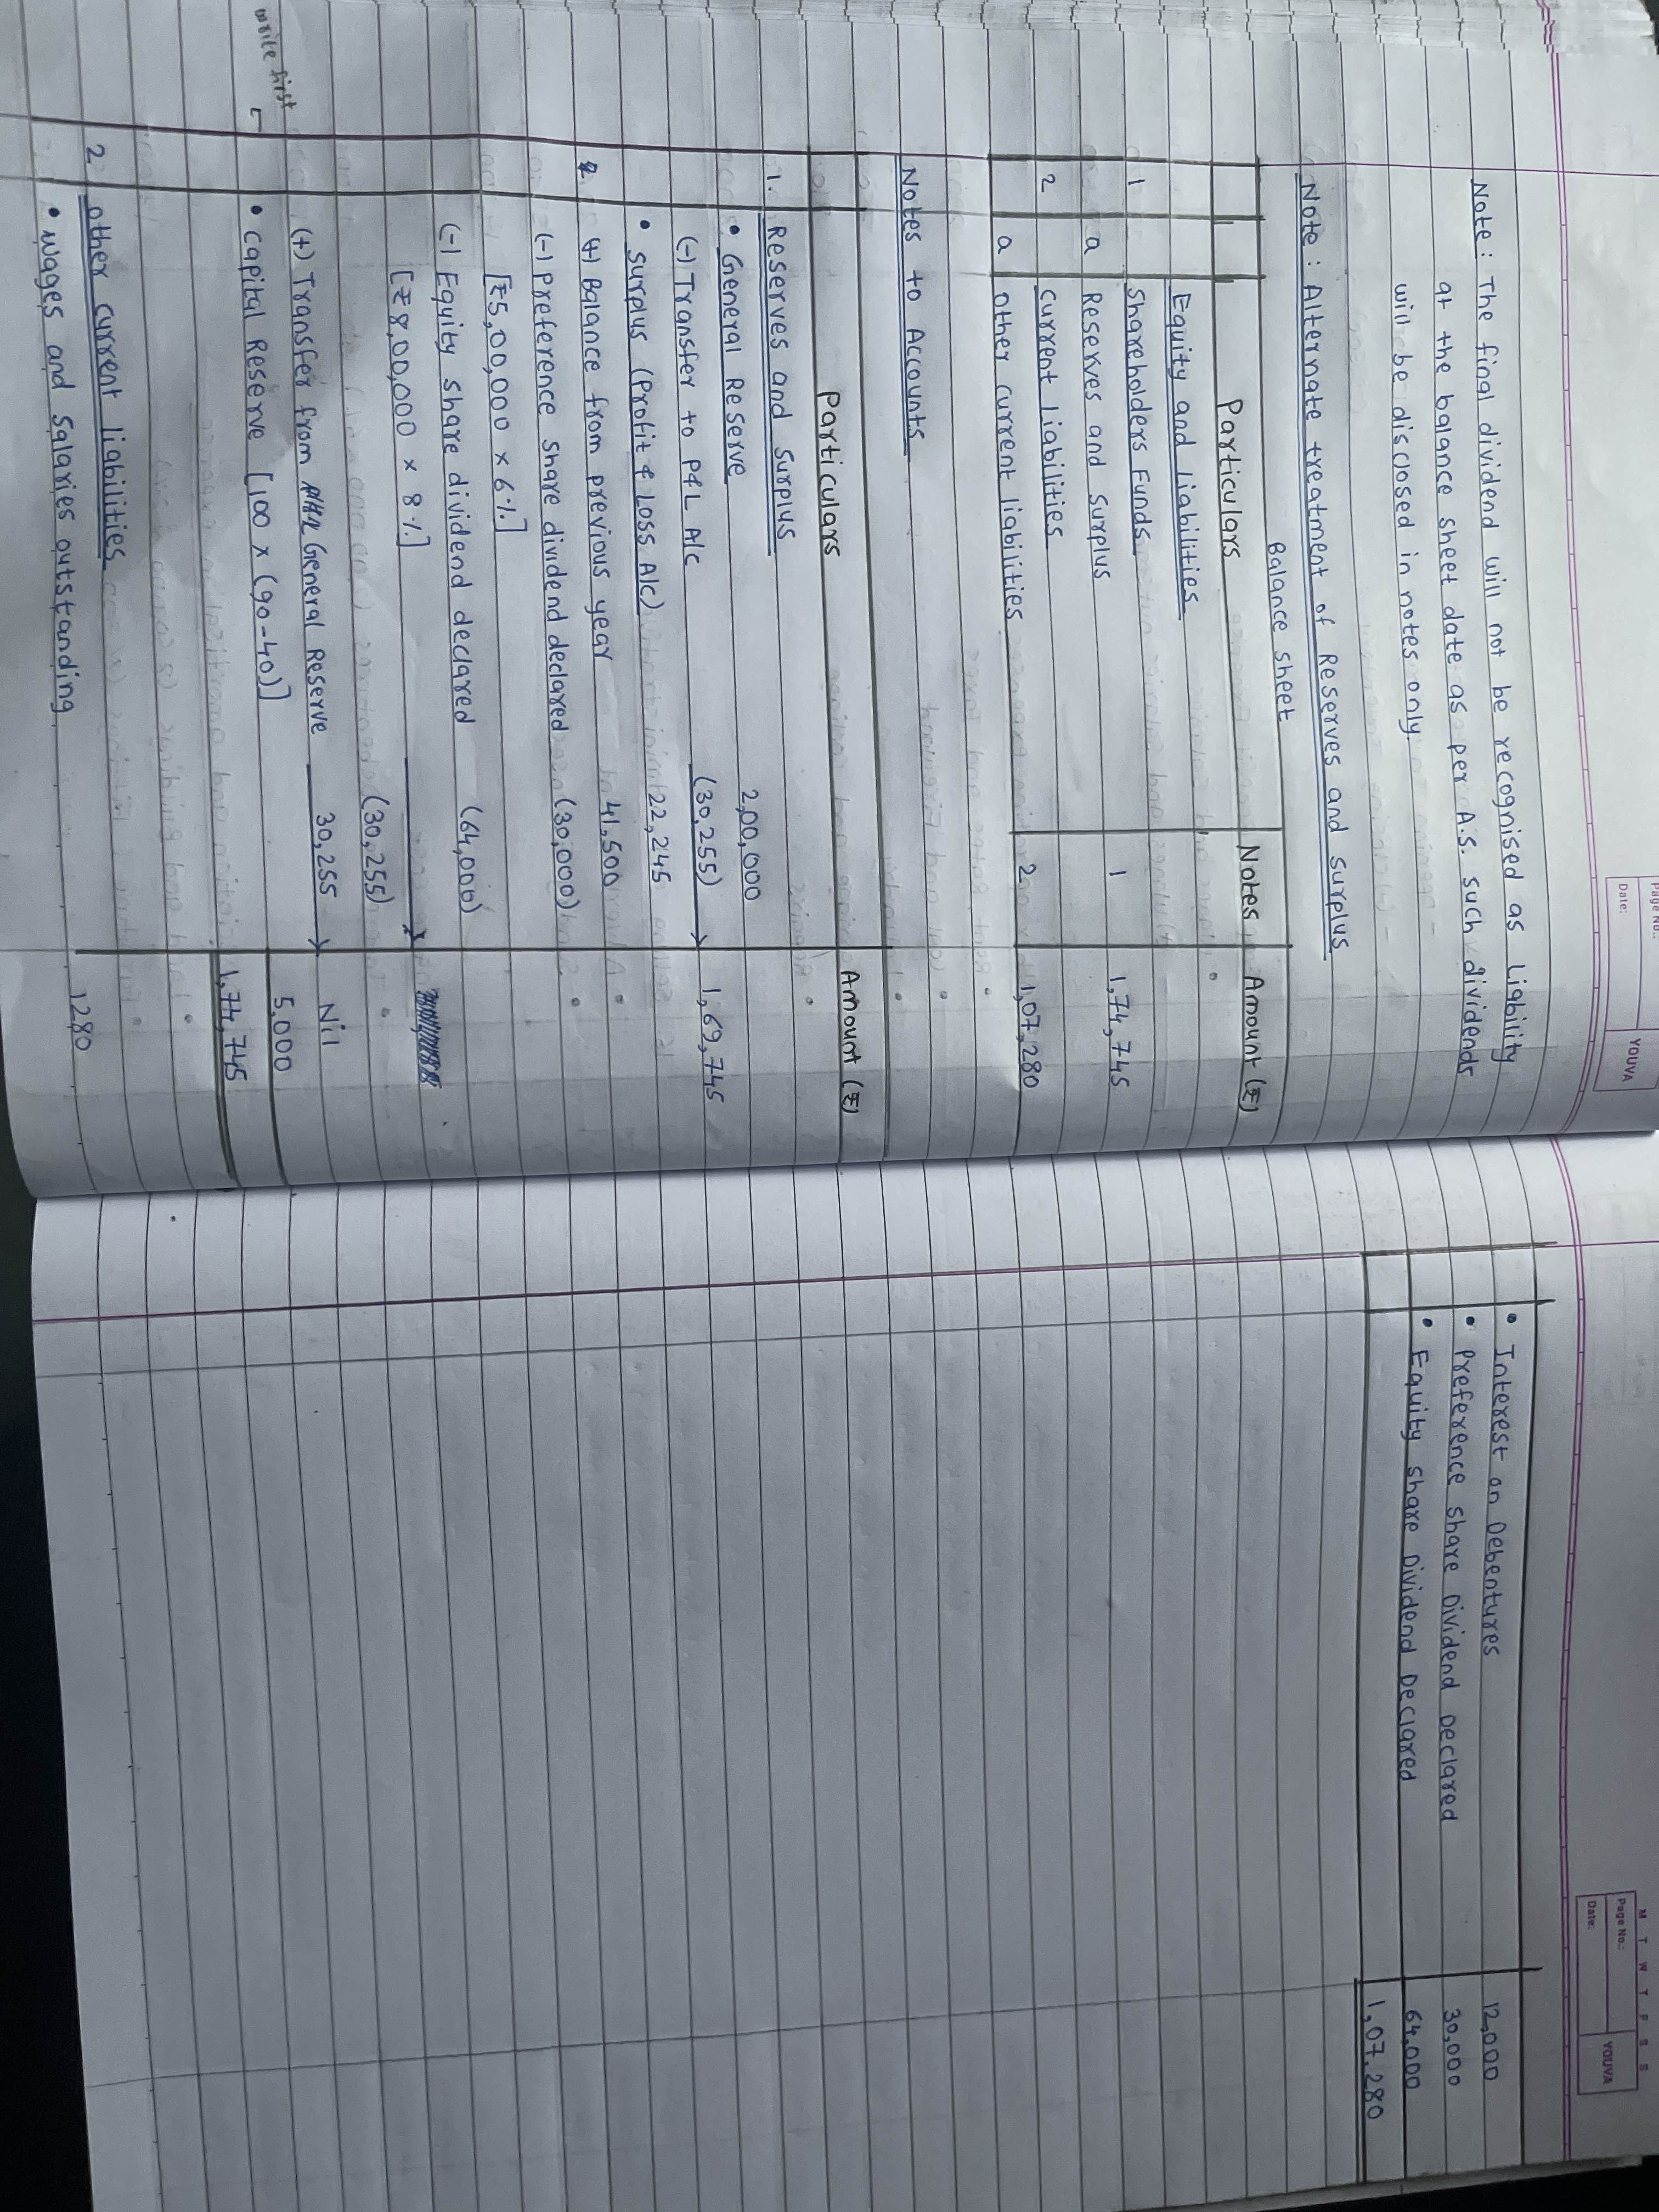 Page No.:
Date:
YOUVA
Note: The final dividend will not be recognised as Liability
at the balance sheet date as per A.S. such dividends
will be disclosed in notes only.
Note: Alternate treatment of Reserves and surplus
Balance sheet
Particulars Notes Amount (₹)
Equity and Liabilities
1 Shareholders Funds
a Reserves and surplus 1 1,74,745
2 Current Liabilities
a other current liabilities 2 1,07,280
Notes to Accounts
Particulars Amount (₹)
1. Reserves and Surplus
• General Reserve 2,00,000
(-) Transfer to P&L A/c (30,255) → 1,69,745
• Surplus (Profit & Loss A/c) 22,245
(+) Balance from previous year 41,500
(-) Preference share dividend declared (30,000)
[₹5,00,000 × 6%]
(-) Equity share dividend declared (64,000)
[₹8,00,000 × 8%]
(30,255)
(+) Transfer from General Reserve 30,255 → Nil
write first
• Capital Reserve [100 × (90-40)] 5,000
1,74,745
2 other current liabilities
• wages and salaries outstanding 1280
M T W T F S S
Page No.:
Date:
YOUVA
• Interest on Debentures 12,000
• Preference share Dividend Declared 30,000
• Equity share Dividend Declared 64,000
1,07,280